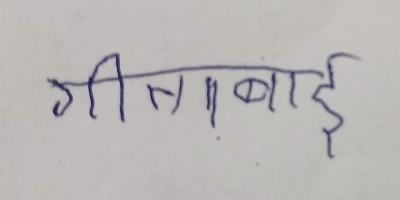 गीताबाई